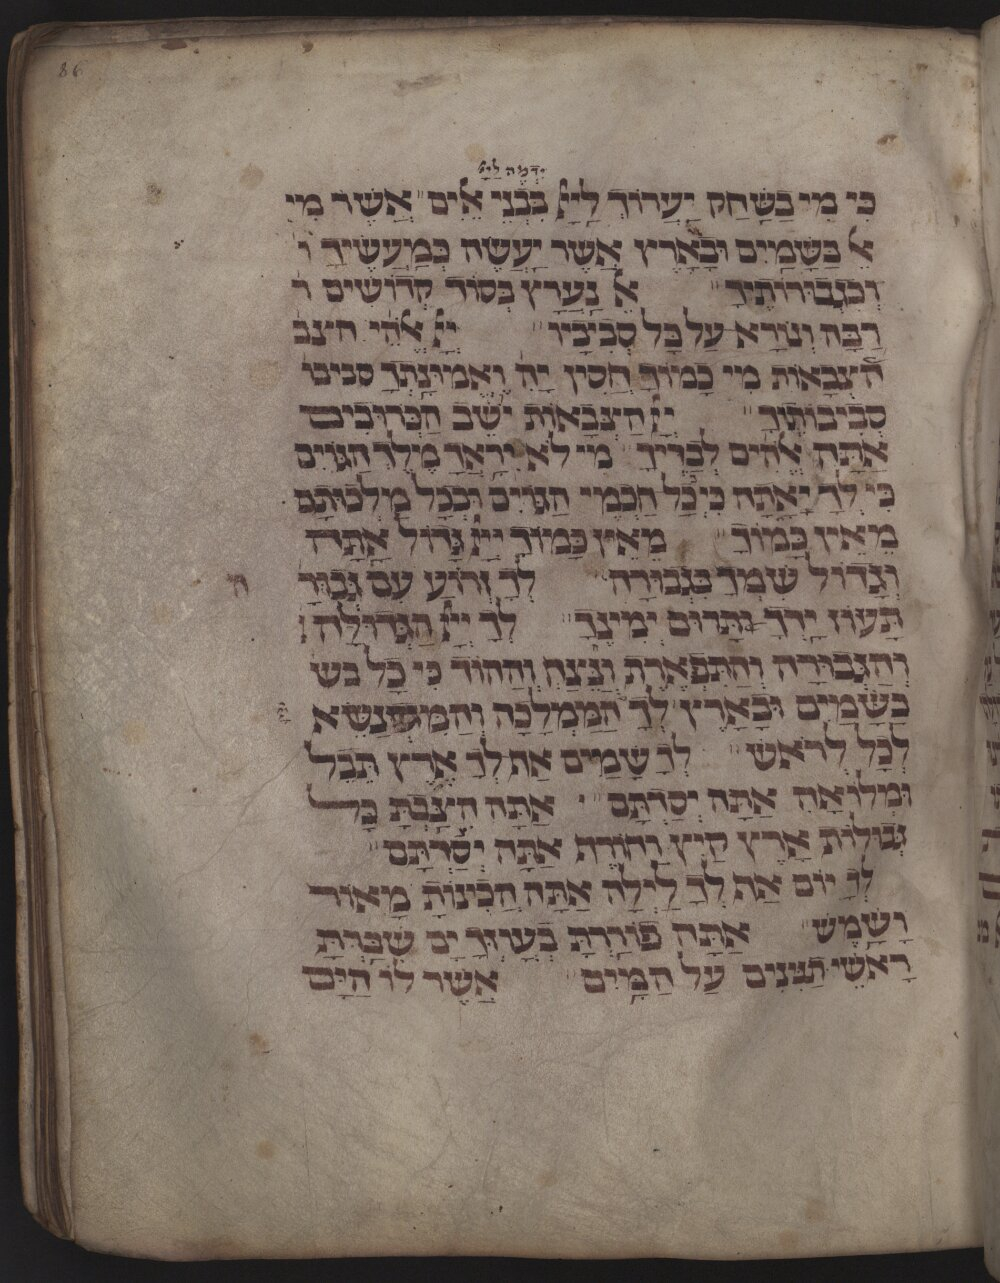 86
ידמה לייי
כִּי מִי בַשַּׁחַק יַעֲרוֹךְ לַייָ בִּבְנֵי אֵלִים" אֲשֶׁר מִי
אֵל בַּשָּׁמַיִם וּבָאָרֶץ אֲשֶׁר יַעֲשֶׂה כְּמַעֲשֶׂיךָ ו
וְכִגְבוּרוֹתֶיךָ" אֵל נַעֲרָץ בְּסוֹד קְדוֹשִׁים ו
רַבָּה וְנוֹרָא עַל כָּל סְבִיבָיו" יְיָ אֱלֹהֵי הצב
הַצְּבָאוֹת מִי כָמוֹךָ חֲסִין יָהּ וֶאֱמוּנָתְךָ סביבו
סְבִיבוֹתֶיךָ" יְיָ הַצְּבָאוֹת יֹשֵׁב הַכְּרוּבִים
אַתָּה אֱלֹהִים לְבַדֶּיךָ" מִי לֹא יִרָאֲךָ מֶלֶךְ הַגּוֹיִם
כִּי לְךָ יָאָתָה כִּי בְכָל חַכְמֵי הַגּוֹיִם וּבְכָל מַלְכוּתָם
מֵאֵין כָּמוֹךָ" מֵאֵין כָּמוֹךָ יְיָ גָּדוֹל אַתָּה
וְגָדוֹל שִׁמְךָ בִּגְבוּרָה" לְךָ זְרוֹעַ עִם גְּבוּרָ
ת
תָּעוֹז יָדְךָ תָּרוּם יְמִינֶךָ" לְךָ יְיָ הַגְּדוּלָּה ו
וְהַגְּבוּרָה וְהַתִּפְאֶרֶת וְנֵצַח וְהַהוֹד כִּי כָל בש
בַּשָּׁמַיִם וּבָאָרֶץ לְךָ הַמַּמְלָכָה וְהַמִּתְנַשֵּׂא
לְכָל לְרֹאשׁ" לְךָ שָׁמַיִם אַף לְךָ אֶרֶץ תֵּבֵל
וּמְלוֹאָהּ אַתָּה יְסַדְתָּם" אַתָּה הִצַּבְתָּ כָּל
גְּבוּלוֹת אָרֶץ קַיִץ וָחוֹרֶף אַתָּה יְצַרְתָּם"
לְךָ יוֹם אַף לְךָ לַיְלָה אַתָּה הֲכִינוֹתָ מָאוֹר
וָשָׁמֶשׁ" אַתָּה פוֹרַרְתָּ בְעוֹזְּךָ יָם שִׁבַּרְתָּ
רָאשֵׁי תַנִּינִים עַל הַמָּיִם" אֲשֶׁר לוֹ הַיָּם